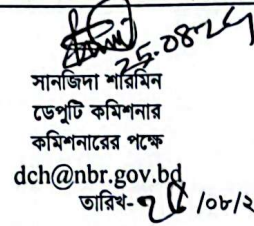 ২৫.০৪.২৫
সানজিদা শারমিন
ডেপুটি কমিশনার
কমিশনারের পক্ষে
dch@nbr.gov.bd
তারিখ- /০৮/২